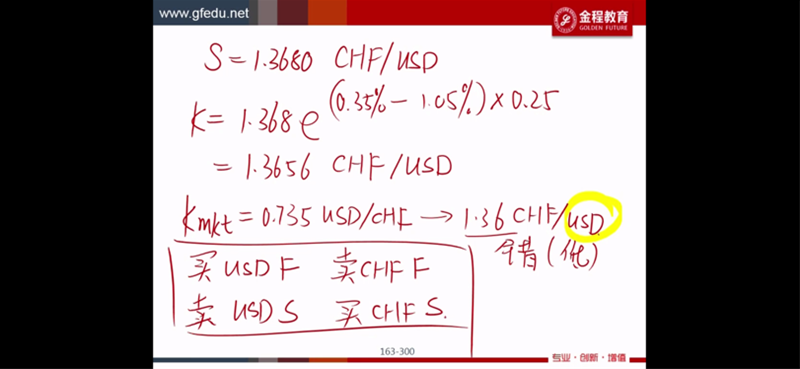 www.gfedu.net
金程教育
GOLDEN FUTURE
S=1.3680 CHF/USD
K=1.368e^(0.35%-1.05%)×0.25
=1.3656 CHF/USD
Kmkt=0.735 USD/CHF→1.36 CHF/USD
定错(低)
买USD F 卖CHF F
卖USD S 买CHF S.
163-300
专业·创新·增值